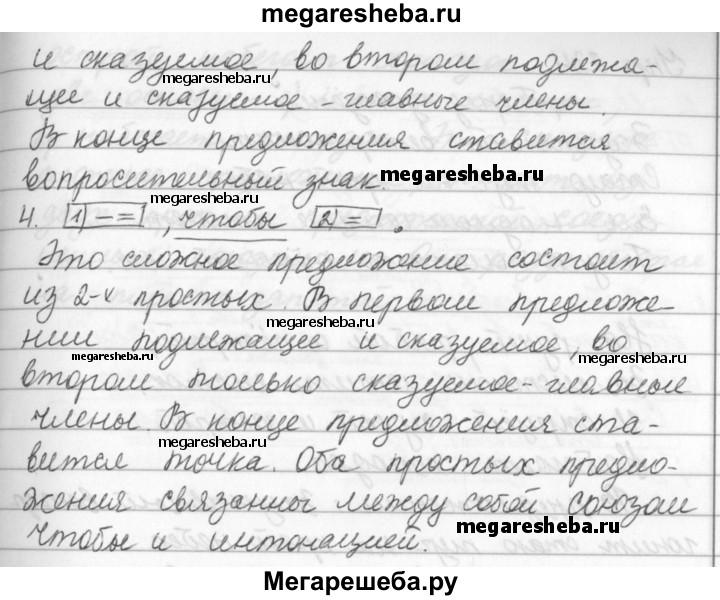 megaresheba.ru
и сказуемое, во втором подлежа-
megaresheba.ru megaresheba.ru
щее и сказуемое - главные члены.
В конце предложения ставится
вопросительный знак. megaresheba.ru
4. [1) — =] , чтобы [2) =] .
Это сложное предложение состоит
из 2-х простых. В первом предложе-
megaresheba.ru
нии подлежащее и сказуемое, во
megaresheba.ru megaresheba.ru
втором только сказуемое - главные
члены. В конце предложения ста-
megaresheba.ru
вится точка. Оба простых предло-
жения связанны между собой союзом
чтобы и интонацией. megaresheba.ru
Мегарешеба.ру